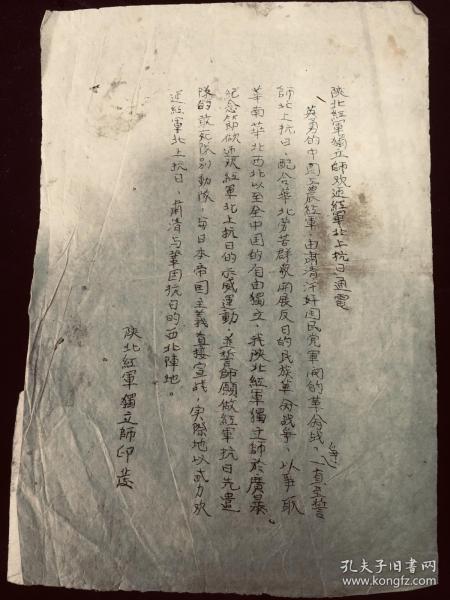 陝北紅軍獨立師欢迎紅軍北上抗日通電
英勇的中国工農紅軍,由肅清汗奸国民党軍閥的革命战争,一直至誓
師北上抗日,配合華北劳苦群衆開展反日的民族革命战争,以争取
華南華北西北以至全中国的自由獨立,我陝北紅軍獨立師於廣暴
紀念節做迎欢紅軍北上抗日的示威運動,並誓師願做紅軍抗日先遣
隊的敢死隊別動隊,与日本帝国主義直接宣战,实際地以武力欢
迎紅軍北上抗日、肅清与鞏固抗日的西北陣地。
陝北紅軍獨立師印發
孔夫子旧书网
www.kongfz.com